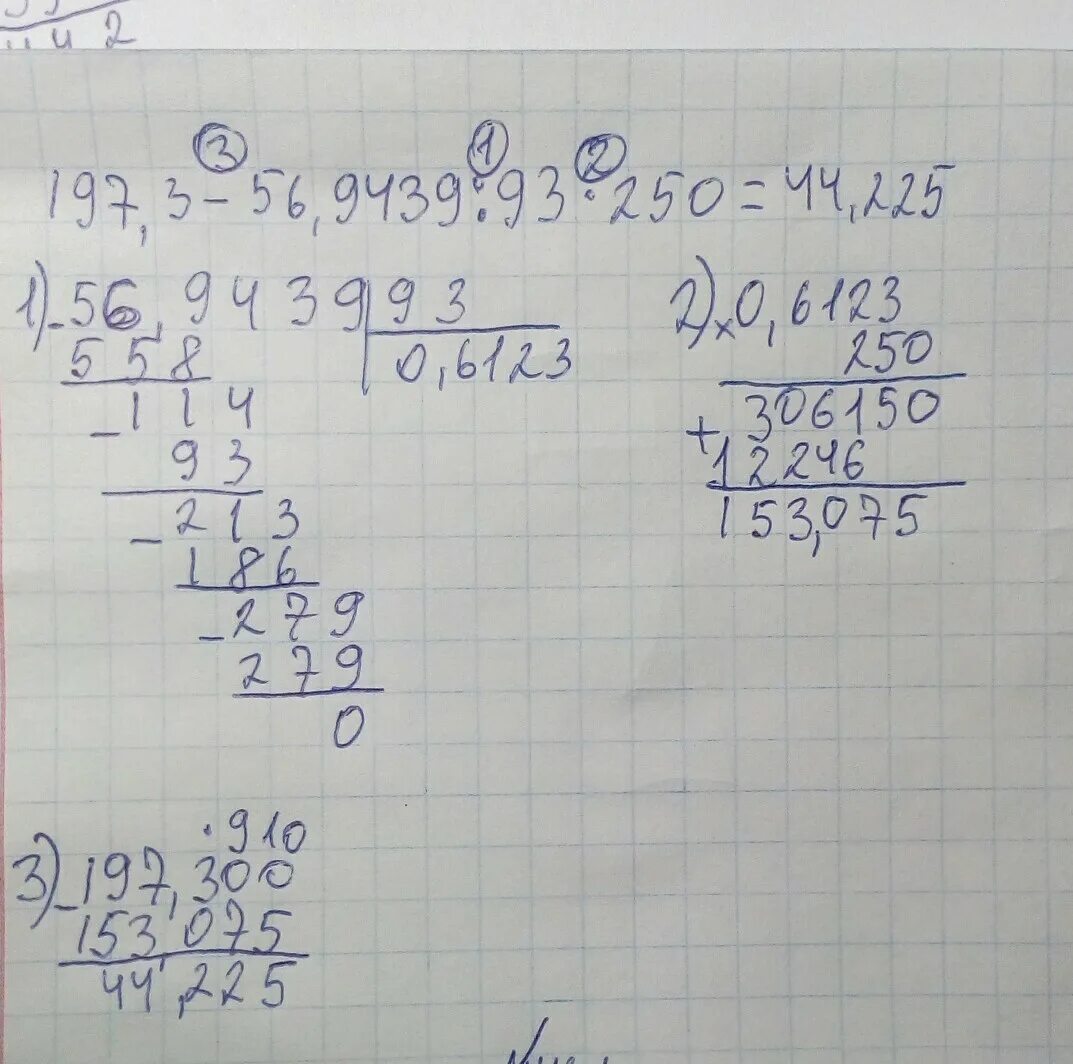 442
③ ① ②
197,3-56,9439:93·250=44,225
1) -56,9439|93
558 0,6123
-114
93
-213
186
-279
279
0
2) ×0,6123
250
306150
+12246
153,075
·910
3) -197,300
153,075
44,225